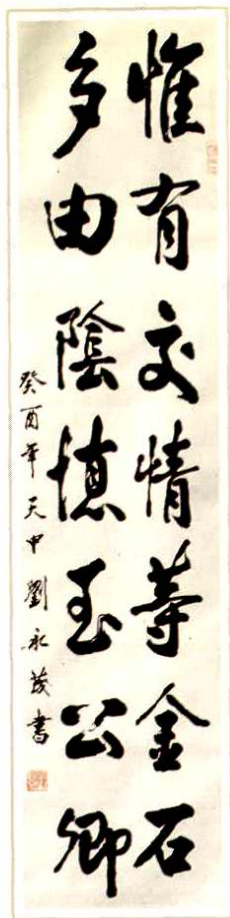 惟有交情等金石
多由陰德至公卿
癸酉年天中劉永茂書